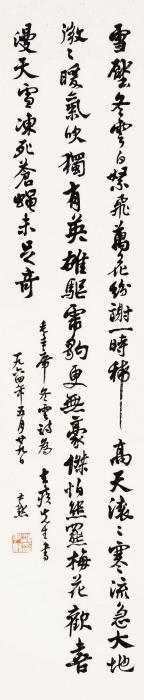 雪壓冬雲白絮飛萬花紛謝一時稀高天滾〻寒流急大地
微〻暖氣吹獨有英雄驅虎豹更無豪傑怕熊羆梅花歡喜
漫天雪凍死蒼蠅未足奇
毛主席冬雲詩為
先生書
一九六四年五月廿九日
尹默